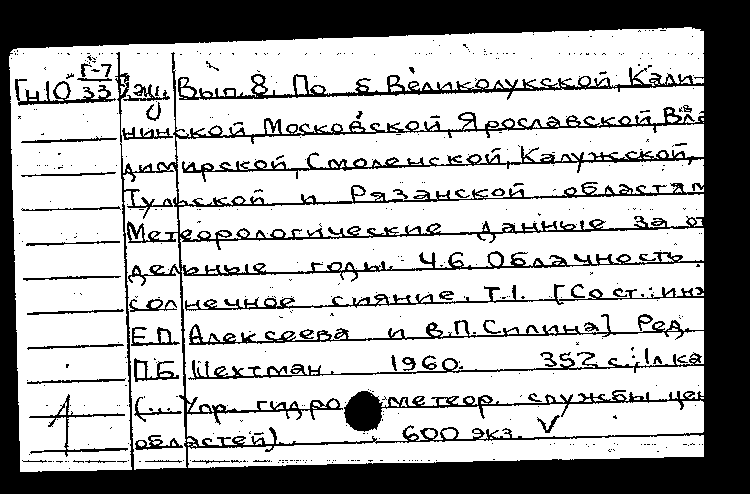 Г-7
Гц10 33 2 эш. Вып. 8. По б. Великолукской, Кали-
нинской, Московской, Ярославской, Вла
димирской, Смоленской, Калужской,
Тульской и Рязанской областям
Метеорологические данные за от
дельные годы. Ч.6. Облачность
солнечное сияние. Т.1. [Сост.: инж
Е.П. Алексеева и В.П. Силина] Ред.
П.Б. Шехтман. 1960. 352 с.; 1л ка
(... Упр. гидрометеор. службы цен
областей). 600 экз. V